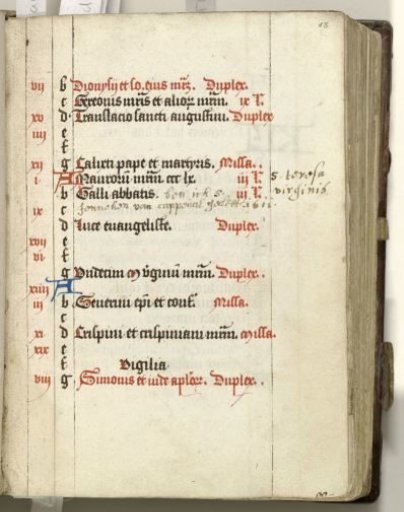 vii b Dionysii et so. eius mr̄z. Duplex.
c Gereonis mr̄is et alior̄ mr̄m. ix l'.
xv d Translacio sancti augustini. Duplex
iiii e
f
xii g Calixti pape et martyris. Missa.
i A Maurorū mr̄m ccc lx. iii l' s. teresa
b Galli abbatis. iii l'. virginis
ix c
d Luce euangeliste. Duplex.
xvii e
vi f
g Vndecim m v̄ginū mr̄m. Duplex.
xiiii A
iii b Seuerini ep̄i et conf'. Missa.
c
xi d Crispini et crispiniani mr̄m. Missa.
xix e
f Vigilia
viii g Simonis et iude ap̄lor̄. Duplex.